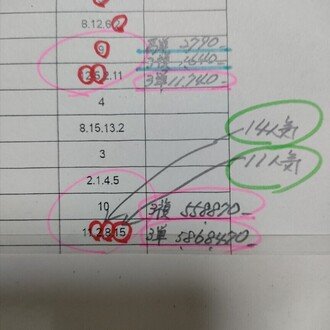 8.12.6.
9 3790
12.6.2.11 3単 11,740
4
8.15.13.2 14人気
3 11人気
2.1.4.5
10 3複 558870
11.2.8.15 3単 5868470